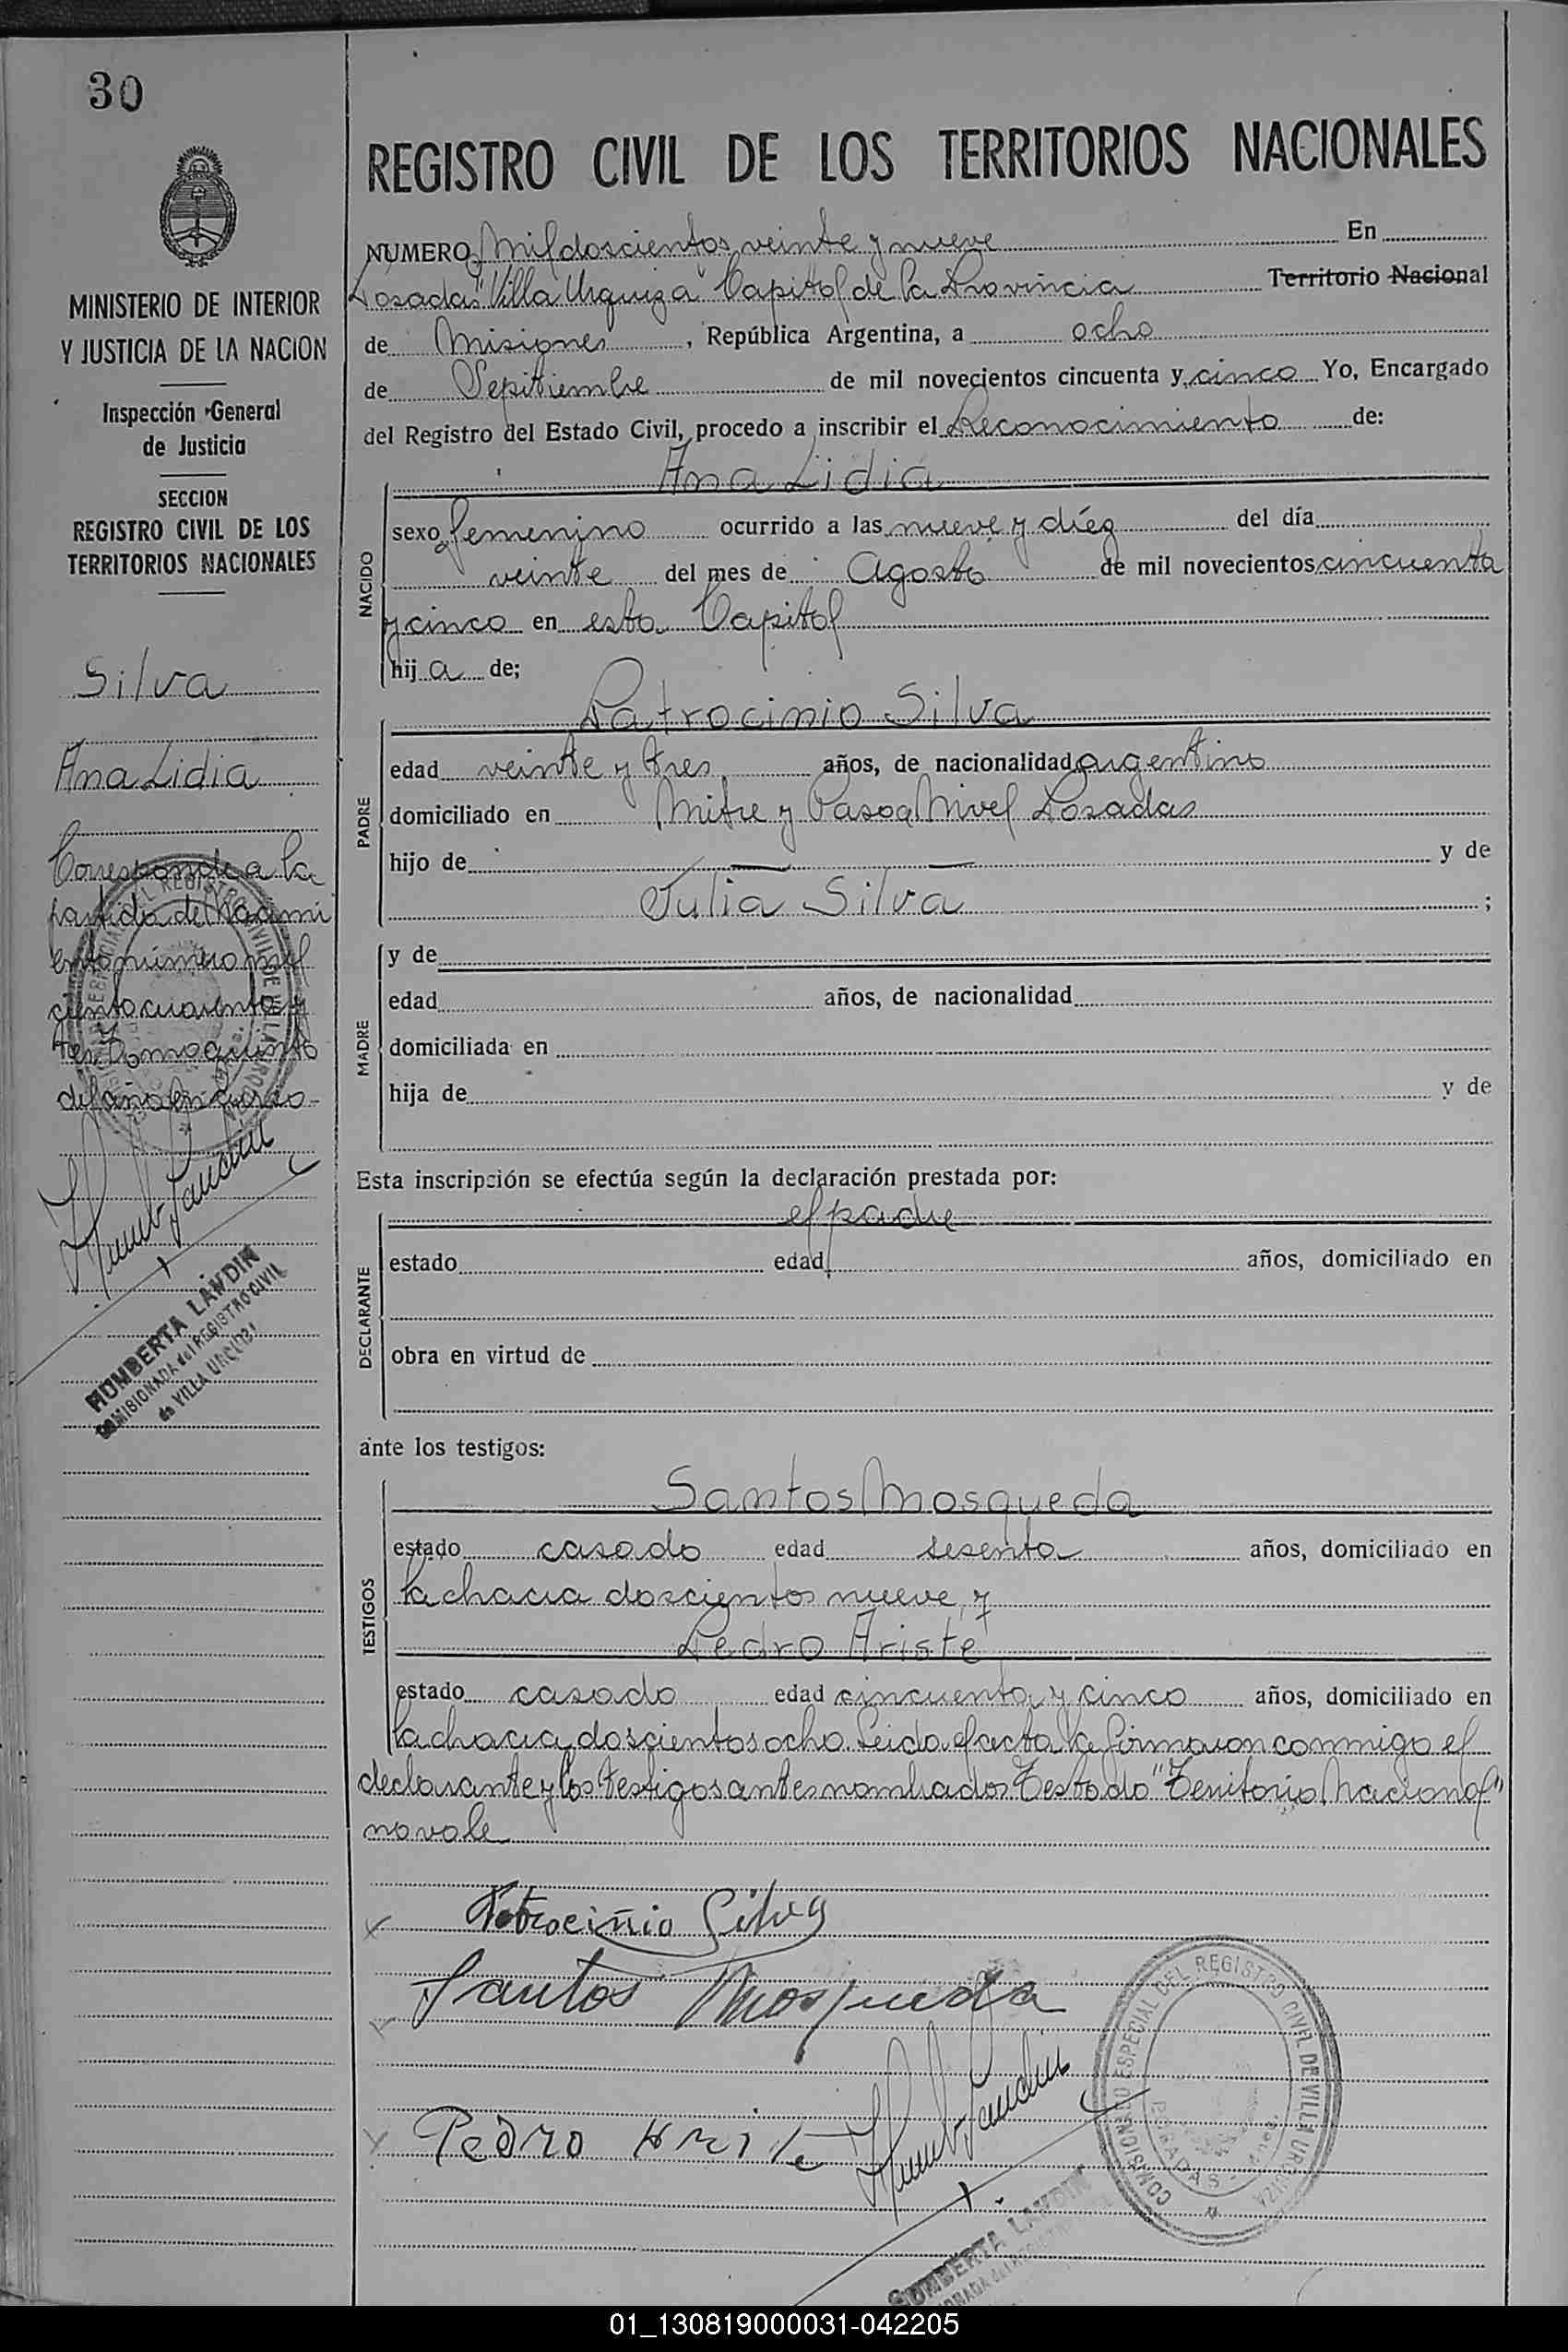 30
MINISTERIO DE INTERIOR
Y JUSTICIA DE LA NACION
Inspección General
de Justicia
SECCION
REGISTRO CIVIL DE LOS
TERRITORIOS NACIONALES
Silva
Ana Lidia
Corresponde a la
partida de Nacimi
ento número mil
ciento cuarenta y
tres Tomo quinto
del año en curso
HUMBERTA LANDIN
COMISIONADA del REGISTRO CIVIL
de VILLA URQUIZA
REGISTRO CIVIL DE LOS TERRITORIOS NACIONALES
NUMERO Mil doscientos veinte y nueve En
Posadas "Villa Urquiza" Capital de la Provincia Territorio Nacional
de Misiones, República Argentina, a ocho
de Septiembre de mil novecientos cincuenta y cinco Yo, Encargado
del Registro del Estado Civil, procedo a inscribir el Reconocimiento de:
Ana Lidia
NACIDO
sexo femenino ocurrido a las nueve y diez del día
veinte del mes de Agosto de mil novecientos cincuenta
y cinco en esta Capital
hija de;
Patrocinio Silva
PADRE
edad veinte y tres años, de nacionalidad argentino
domiciliado en Mitre y Paso a Nivel Posadas
hijo de — — y de
Julia Silva ;
MADRE
y de
edad años, de nacionalidad
domiciliada en
hija de y de
Esta inscripción se efectúa según la declaración prestada por:
el padre
DECLARANTE
estado edad años, domiciliado en
obra en virtud de
ante los testigos:
Santos Mosqueda
TESTIGOS
estado casado edad sesenta años, domiciliado en
la chacra doscientos nueve, y
Pedro Ariste
estado casado edad cincuenta y cinco años, domiciliado en
la chacra doscientos ocho. Leida el acta la firmaron conmigo el
declarante y los testigos antes nombrados Testado "Territorio Nacional"
no vale
Patrocinio Silva
Santos Mosqueda
Pedro Ariste
COMISIONADO ESPECIAL DEL REGISTRO CIVIL DE VILLA URQUIZA
POSADAS
HUMBERTA LANDIN
01_130819000031-042205